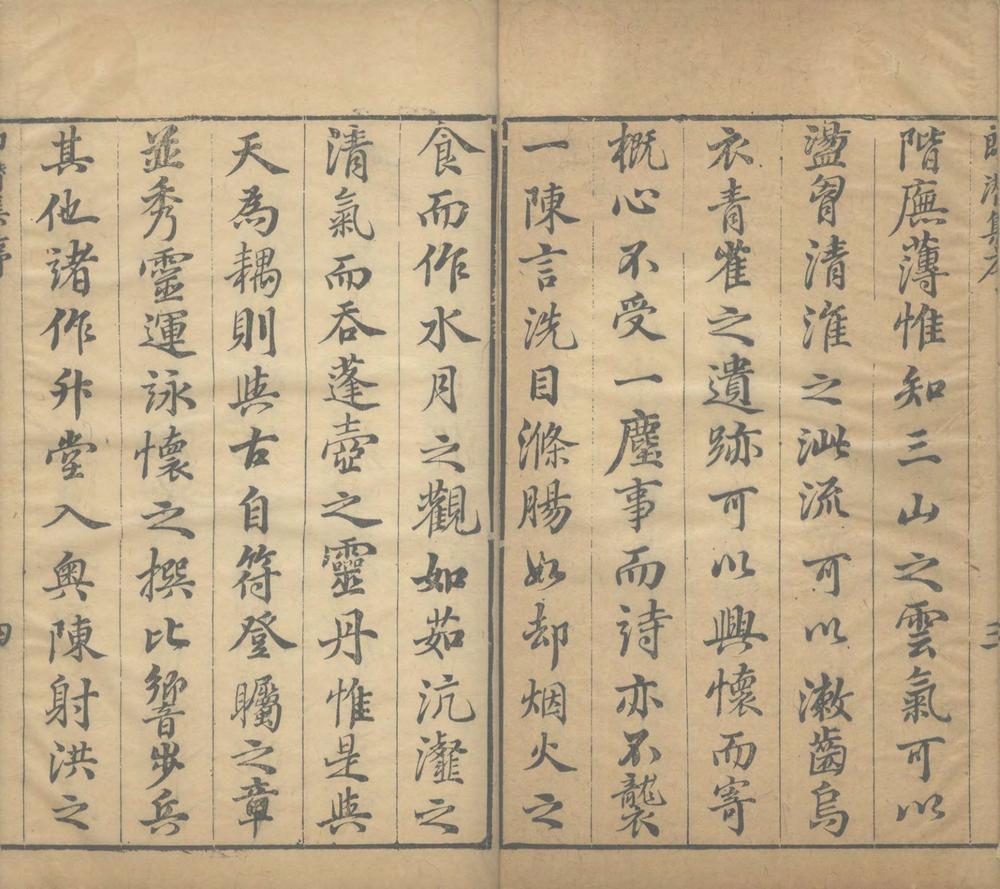 階廡薄惟知三山之雲氣可以
盪胷清淮之泚流可以漱齒烏
衣青雀之遺跡可以興懷而寄
概心不受一塵事而詩亦不襲
一陳言洗目滌腸如却烟火之
食而作水月之觀如茹沆瀣之
清氣而吞蓬壺之靈丹惟是與
天為耦則與古自符登矚之章
並秀靈運詠懷之撰比響步兵
其他諸作升堂入奧陳射洪之